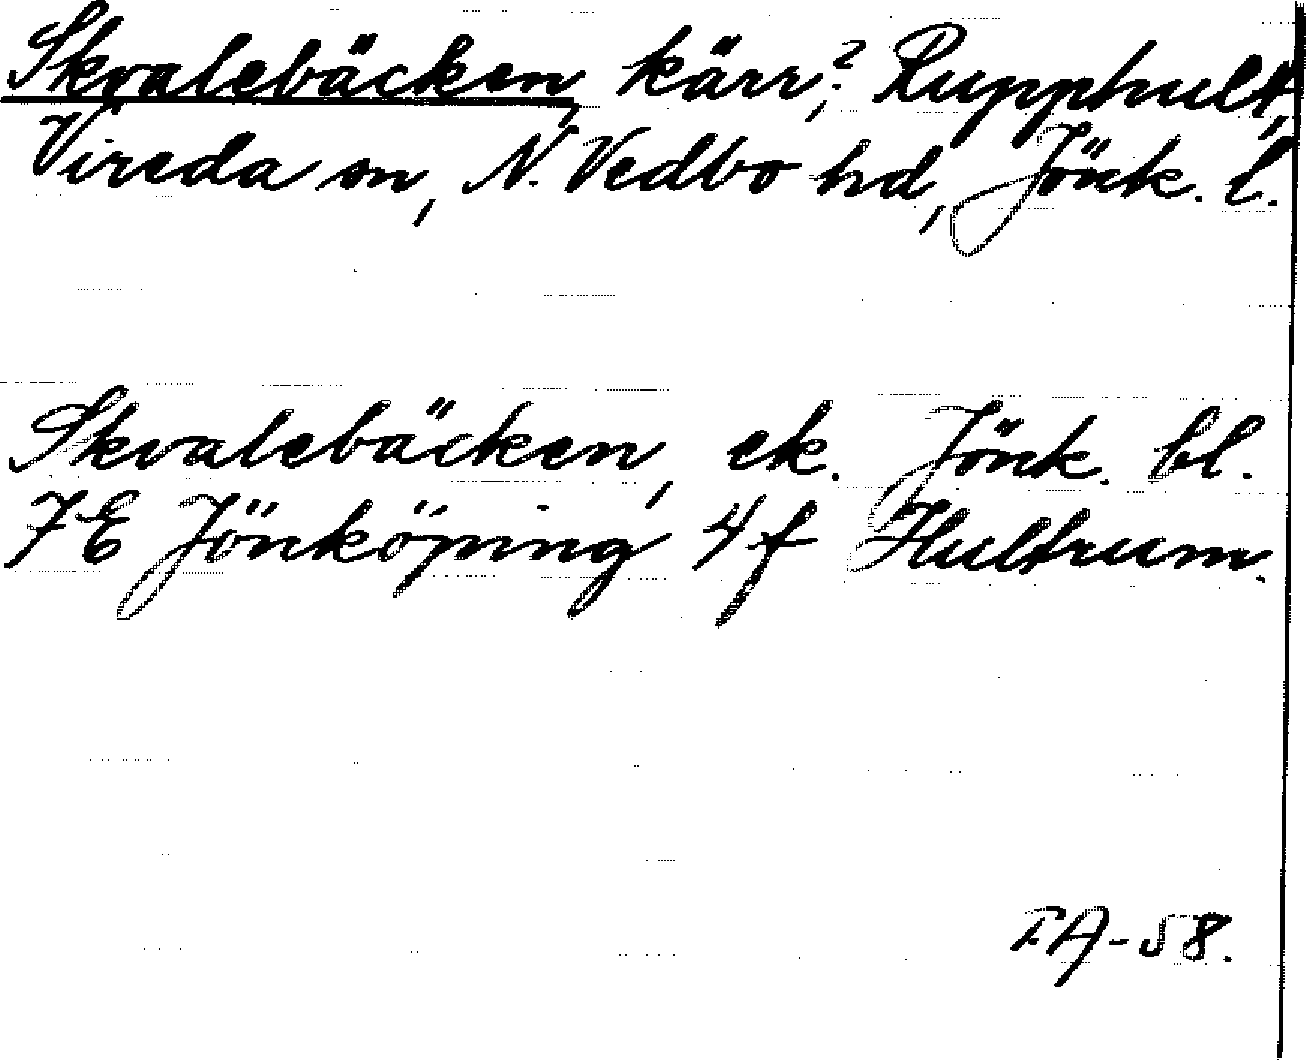 Skvalebäcken, kärr?, Rupphult,
Vireda sn, N. Vedbo hd, Jönk. l.
Skvalebäcken, ek. Jönk. bl.
7E Jönköping 4f Hultrum.
FA-58.